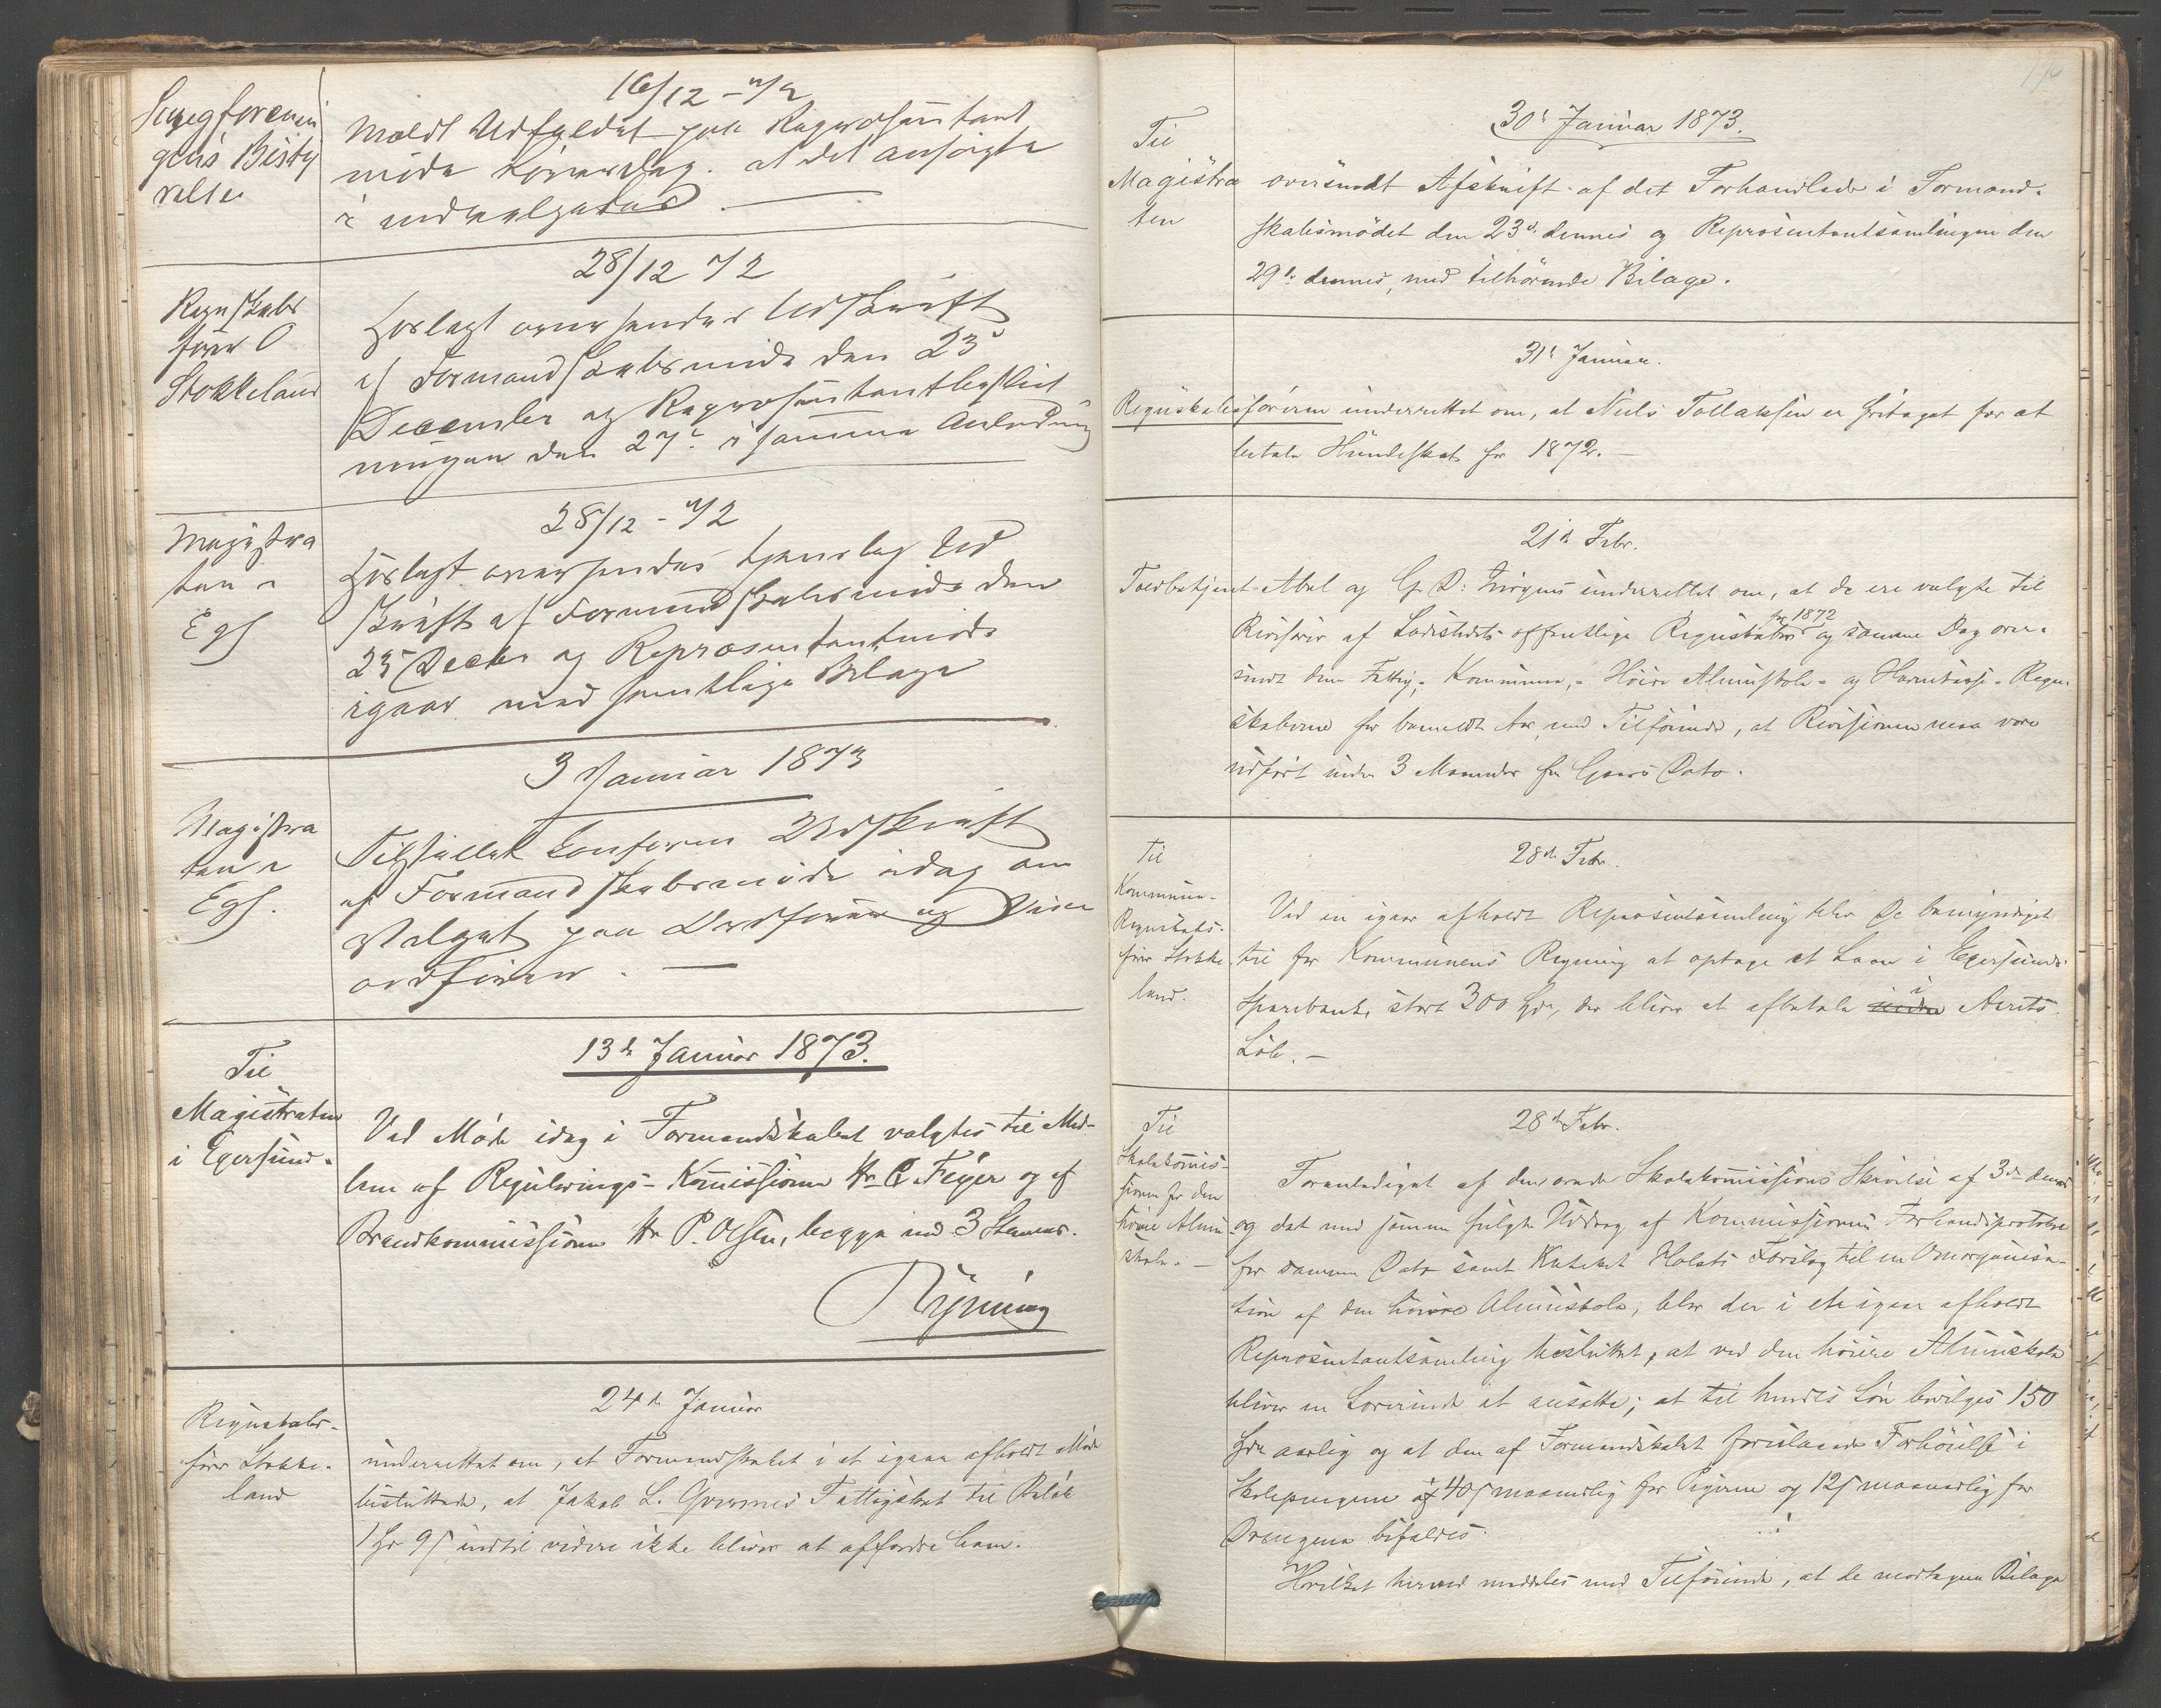 Sangforenin
gens Besty
relse
16/12 - 72
Meldt Udfaldet paa Representant
møde Løverdag. at det ansøgte
i
28/12 72
Regnskabs
fører O
Stokkeland
Herlagt oversendes Udskrift
af Formandskabsmøde den 23d
December og Representantbeslut
ningen den 27de i samme Anledning
28/12 - 72
Magistra
ten i
Egs
Herlagt oversendes Ud
skrift af Formandskabsmøde den
23 Decbr og Repræsentantmøde
igaar med samtlige Bilage
3 Januar 1873
Magistra
ten i
Egs.
Tilstillet konform Udskrift
af Formandskabsmøde idag om
Valget paa Ordfører og Vice
ordfører. —
13de Januar 1873.
Til
Magistraten
i Egersund.
Ved Møde idag i Formandskabet valgtes til Med-
lem af Regulerings-Kommissionen Hr. C. Feyer og af
Brandkommissionen Hr P. Olsen, begge med 3 Stemmer.
24de Januar
Regnskabs-
fører Stokke-
land
underrettet om, at Formandskabet i et igaar afholdt Møde
besluttede, at Jakob L. Fattigskat til Beløb
indtil videre ikke bliver at affordre ham.
30te Januar 1873.
Til
Magistra
ten
oversendt Afskrift af det Forhandlede i Formand-
skabsmødet den 23de dennes og Representantsamlingen den
29de dennes, med tilhørende Bilage.
31te Januar.
Regnskabsføreren underrettet om, at Niels Tollaksen er fritaget for at
betale Hundeskat for 1872. —
21de Febr.
Toldbetjent Abel og underrettet om, at de ere valgte til
Revisorer af Ladestedets offentlige Regnskaber for 1872 og samme Dag over-
sendt dem Fattig-, Kommune-, Høiere Almuskole- og Havnekasse-Regn-
skaberne for bemeldte Aar, med Tilføiende, at Revisionen maa være
udført inden 3 Maaneder fra Gaars Dato.
28de Febr.
Til
Kommune-
Regnskabs-
fører Stokke
land.
Ved en igaar afholdt Representsamling blev De bemyndiget
til for Kommunens Regning at optage et Laan i Egersunds
Sparebank, stort 300 Spd, der bliver at afbetale i Aarets
Løb. —
28de Febr.
Til
Skolekommis-
sionen for den
høiere Almu
skole. —
Foranlediget af den ærede Skolekommissions Skrivelse af 3die dennes
og det med samme fulgte Uddrag af Kommissionens Forhandlsprotokol
for samme Dato samt Kateket Holsts Forslag til en Omorganisa-
tion af den høiere Almuskole, blev der i et igaar afholdt
Representantsamling besluttet, at ved den høiere Almuskole
bliver en Lærerinde at ansætte; at til hendes Løn bevilges 150
Spd aarlig og at den af Formandskabet foreslaaede Forhøielse i
Skolepengene af 40s maanedlig for Pigerne og 12s maanedlig for
Drengene bifaldes.
Hvilket herved meddeles med Tilføiende, at de modtagne Bilage